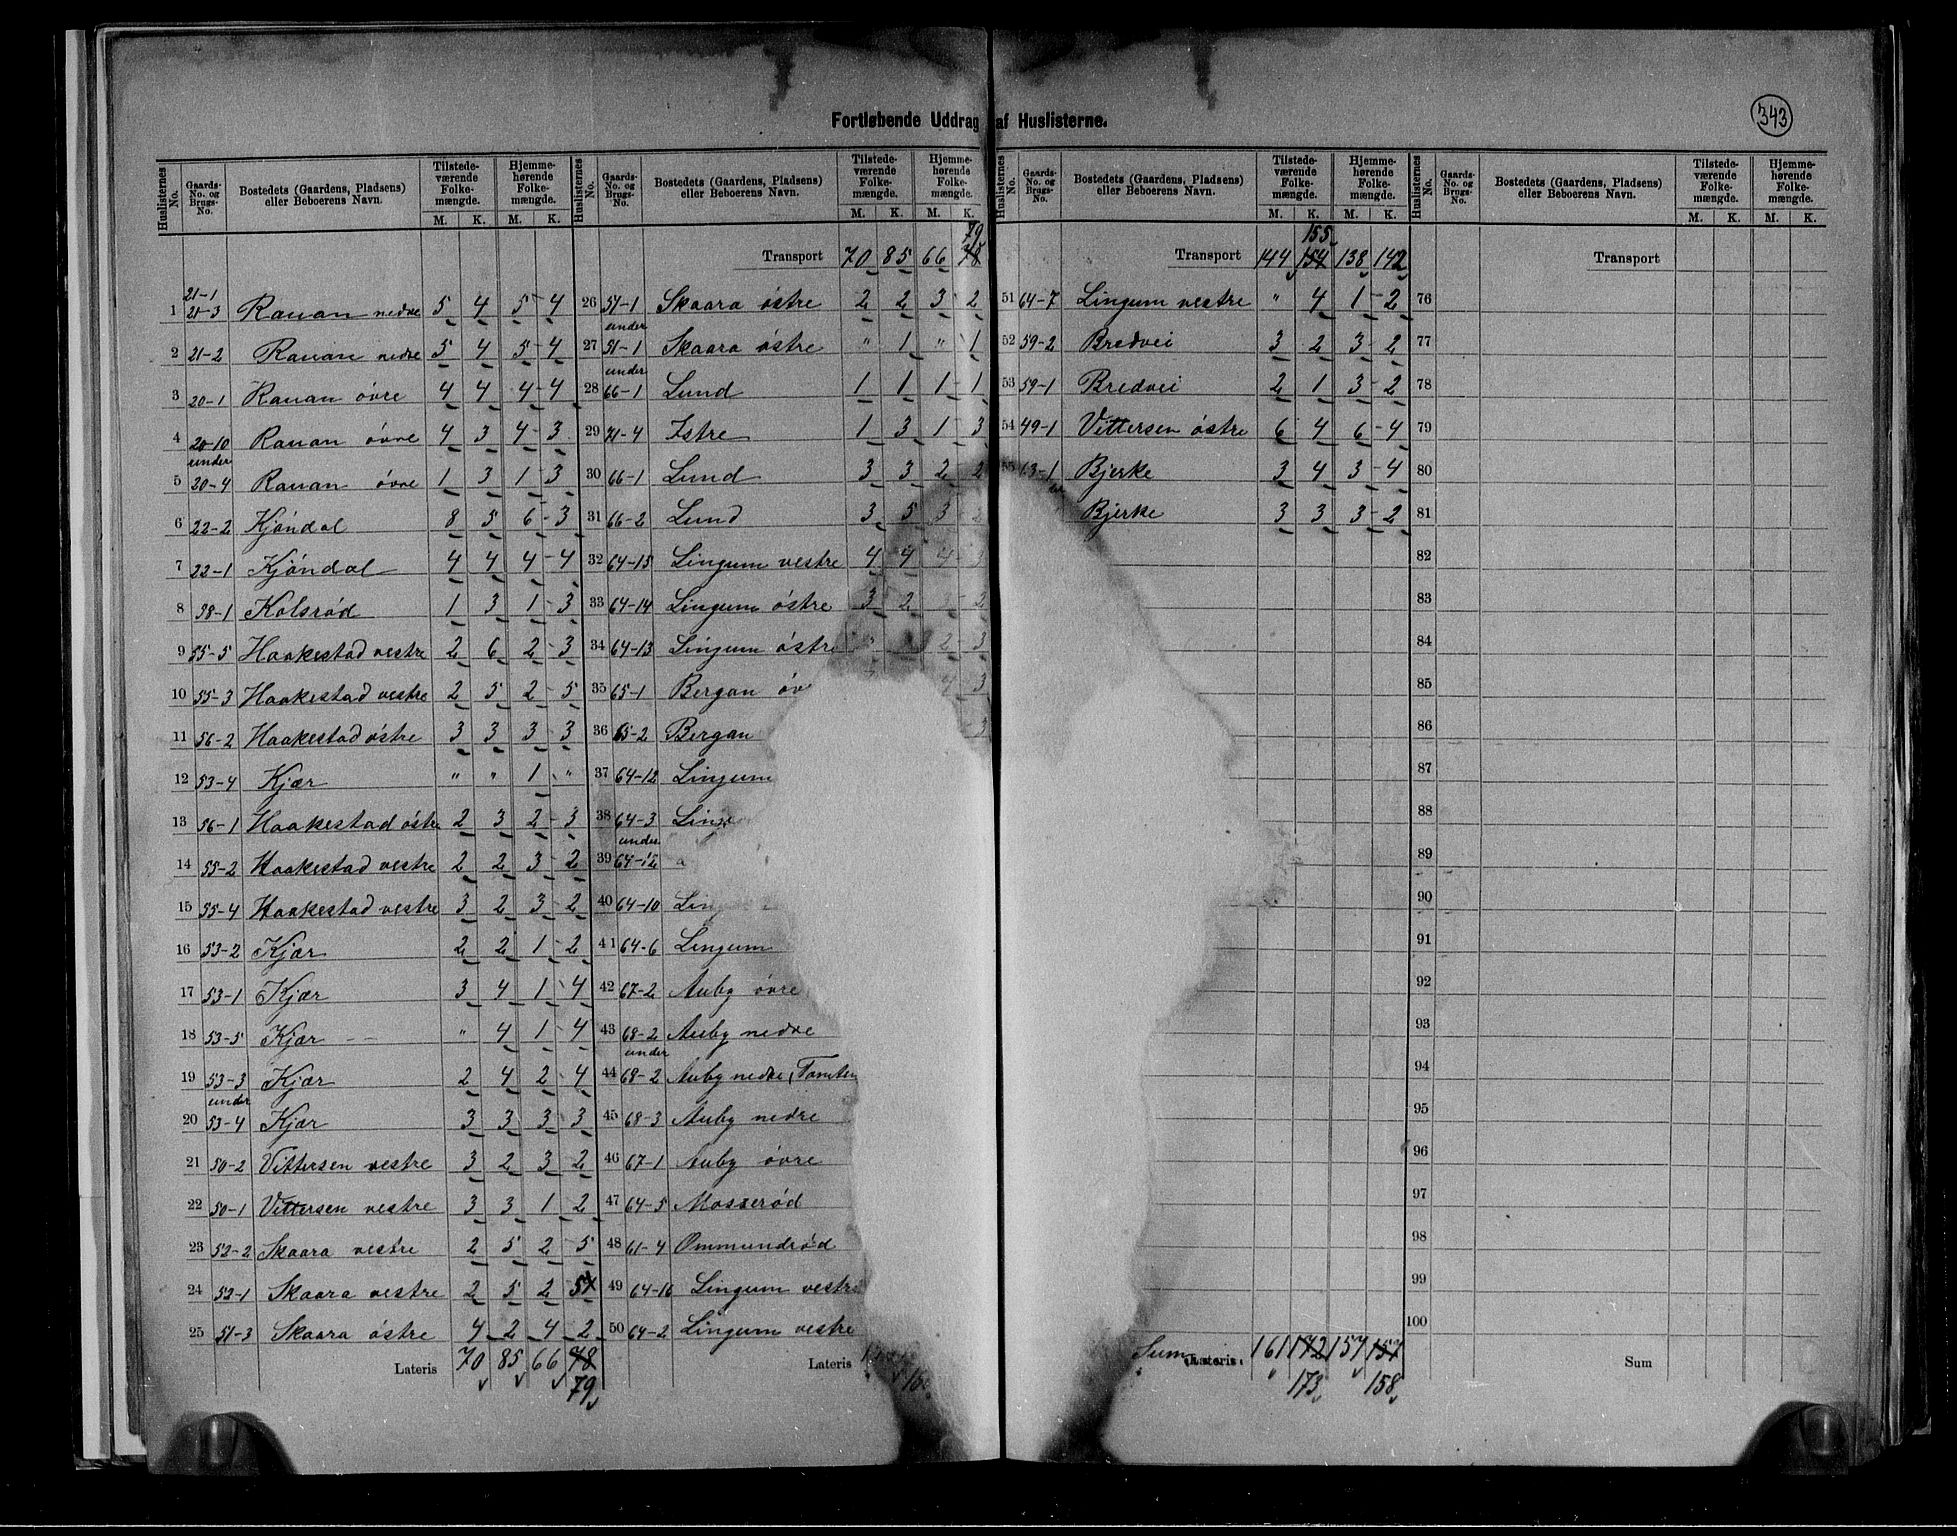 Fortløbende Uddrag af Huslisterne.
343
Huslisternes No. Gaards-No. og Brugs-No. Bostedets (Gaardens, Pladsen) eller Beboerens Navn. Tilstedeværende Folkemængde. M. K. Hjemmehørende Folkemængde. M. K.
1 21-1 21-3 Rauan nedre 5 4 5-4
2 21-2 Rauan nedre 5 4 5-4
3 20-1 Rauan øvre 4 4 4-4
4 20-10 Rauan øvre 4 3 4-3
5 under 20-4 Rauan øvre 1 3 1-3
6 22-2 Kjöndal 8 5 6-3
7 22-1 Kjöndal 4 4 4-4
8 38-1 Kolsrød 1 3 1-3
9 55-5 Haakestad vestre 2 6 2-3
10 55-3 Haakestad vestre 2 5 2-5
11 56-2 Haakestad østre 3 3 3 3
12 53-4 Kjær " " 1 "
13 56-1 Haakestad østre 2 3 2-3
14 55-2 Haakestad vestre 2 2 3-2
15 55-4 Haakestad vestre 3 2 3-2
16 53-2 Kjær 2 2 1-2
17 53-1 Kjær 3 4 1-4
18 53-5 Kjær " 4 1-4
19 53-3 Kjær 2 4 2-4
20 under 53-4 Kjær 3 3 3 3
21 50-2 Vittersen vestre 3 2 3 2
22 50-1 Vittersen vestre 3 3 1 2
23 52-2 Skaara vestre 2 5 2 5
24 52-1 Skaara vestre 2 5 2 5
25 51-3 Skaara østre 4 2 4 2
Lateris 70 85 66 78
79
Huslisternes No. Gaards-No. og Brugs-No. Bostedets (Gaardens, Pladsen) eller Beboerens Navn. Tilstedeværende Folkemængde. M. K. Hjemmehørende Folkemængde. M. K.
79
Transport 70 85 66 78
26 51-1 Skaara østre 2 2 3-2
27 under 51-1 Skaara østre " 1 " 1
28 under 66-1 Lund 1 1 1-1
29 71-4 Istre 1 3 1-3
30 66-1 Lund 3 3 2-2
31 66-2 Lund 3 5 3-2
32 64-15 Lingum vestre 4 4 4 3
33 64-14 Lingum østre 3 2 2
34 64-13 Lingum østre " 2-3
35 65-1 Bergan 4 3
36 65-2 Bergan 3
37 64-12 Lingum
38 64-3
39 under 64-12
40 64-10
41 64-6 Lingum
42 67-2 Auby øvre
43 68-2 Auby nedre
44 under 68-2 Auby nedre,
45 68-3 Auby nedre
46 67-1 Auby øvre
47 64-5 Mosserød
48 61-4 Ommundrød
49 64-16 Lingum vestre
50 64-2 Lingum vestre
Lateris
Huslisternes No. Gaards-No. og Brugs-No. Bostedets (Gaardens, Pladsen) eller Beboerens Navn. Tilstedeværende Folkemængde. M. K. Hjemmehørende Folkemængde. M. K.
155
Transport 144 154 138 142
51 64-7 Lingum vestre " 4 1-2
52 59-2 Bredvei 3 2 3-2
53 59-1 Bredvei 2 1 3-2
54 49-1 Vittersen østre 6 4 6-4
55 Bjerke 3 4 3-4
Bjerke 3 3 3-2
Sum Lateris 161 172 157 157
" 173 158
Huslisternes No. Gaards-No. og Brugs-No. Bostedets (Gaardens, Pladsen) eller Beboerens Navn. Tilstedeværende Folkemængde. M. K. Hjemmehørende Folkemængde. M. K.
Transport
76
77
78
79
80
81
82
83
84
85
86
87
88
89
90
91
92
93
94
95
96
97
98
99
100
Sum